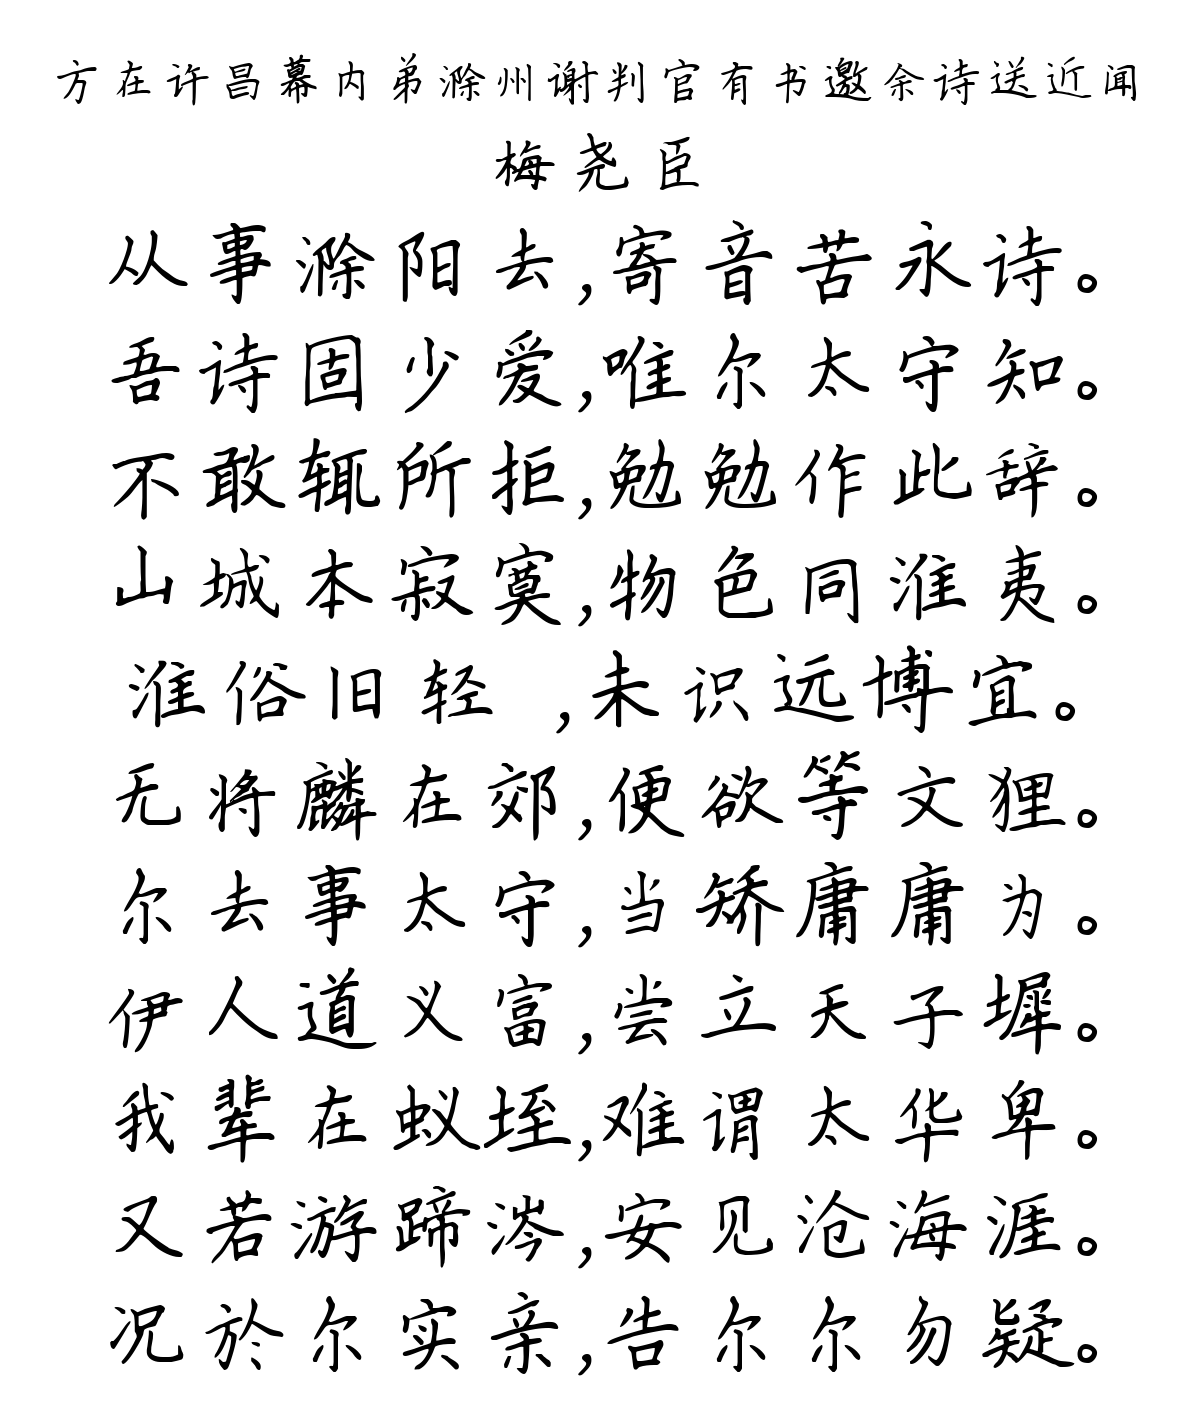 方在许昌幕内弟滁州谢判官有书邀余诗送近闻
梅尧臣
从事滁阳去,寄音苦永诗。
吾诗固少爱,唯尔太守知。
不敢辄所拒,勉勉作此辞。
山城本寂寞,物色同淮夷。
淮俗旧轻 ,未识远博宜。
无将麟在郊,便欲等文狸。
尔去事太守,当矫庸庸为。
伊人道义富,尝立天子墀。
我辈在蚁垤,难谓太华卑。
又若游蹄涔,安见沧海涯。
况於尔实亲,告尔尔勿疑。